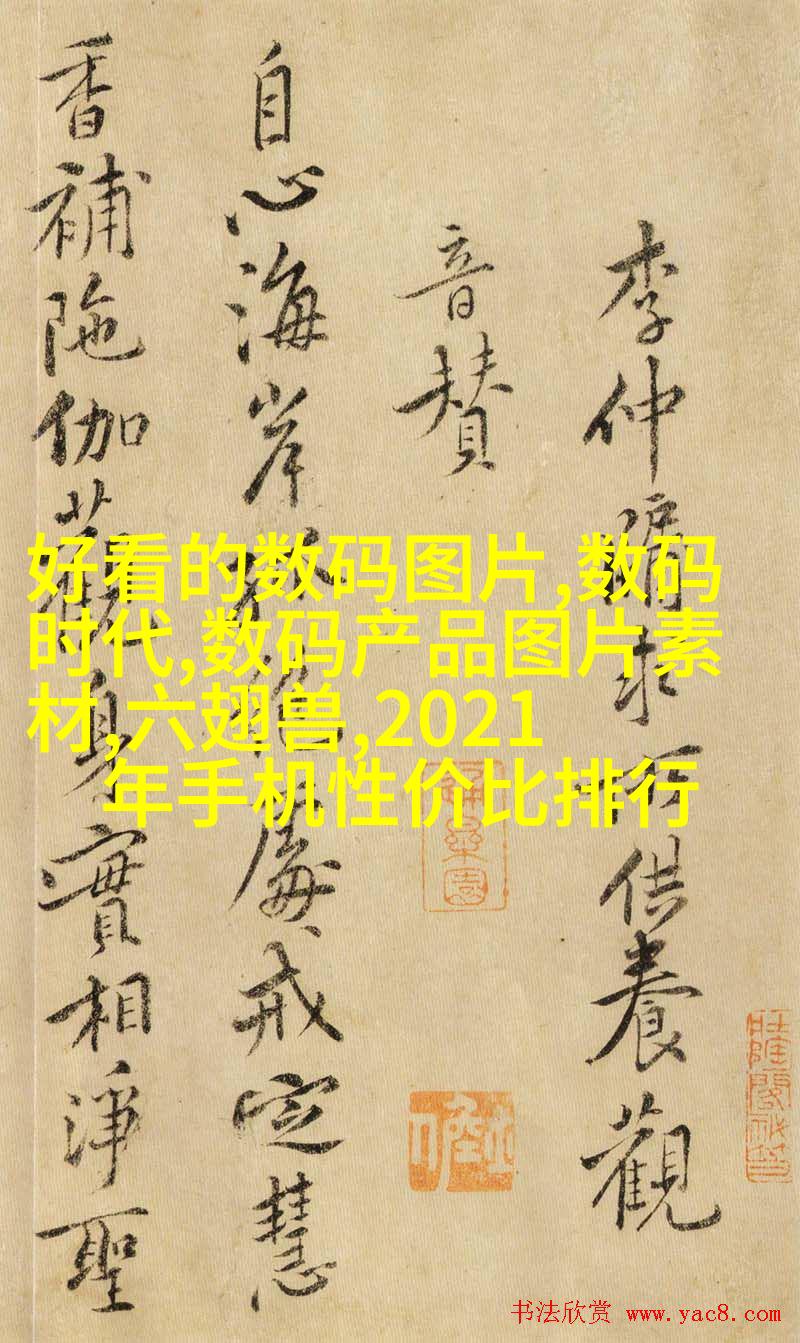 李仲牖求所供養觀
音贊
自心海岸孤絕處戒定慧
香補陁伽觀身實相淨聖
好看的数码图片,数码
时代,数码产品图片素
材,六翅兽,2021
年手机性价比排行
书法欣赏 www.yac8.com